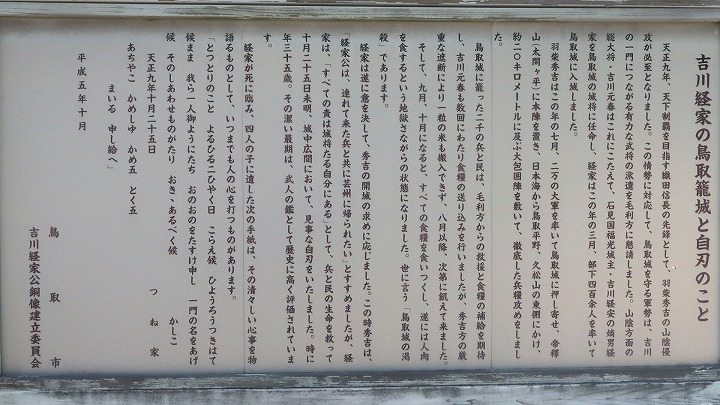 吉川経家の鳥取籠城と自刃のこと
天正九年、天下制覇を目指す織田信長の先鋒として、羽柴秀吉の山陰侵
攻が必至となりました。この情勢に対応して、鳥取城を守る軍勢は、吉川
の一門につながる有力な武将の派遣を毛利方に懇請しました。山陰方面の
総大将・吉川元春はこれにこたえて、石見国福光城主・吉川経安の嫡男経
家を鳥取城の城将に任命し、経家はこの年の三月、部下四百余人を率いて
鳥取城に入城しました。
羽柴秀吉はこの年の七月、二万の大軍を率いて鳥取城に押し寄せ、帝釈
山（太閤ヶ平）に本陣を置き、日本海から鳥取平野、久松山の東側にかけ、
約二〇キロメートルに及ぶ大包囲陣を敷いて、徹底した兵糧攻めをしまし
た。
鳥取城に籠った二千の兵と民は、毛利方からの救援と食糧の補給を期待
し、吉川元春も数回にわたり食糧の送り込みを行いましたが、秀吉方の厳
重な遮断により一粒の米も搬入できず、八月以降、次第に飢えて来ました。
そして、九月、十月になると、すべての食糧を食いつくし、遂には人肉
を食するという地獄さながらの状態になりました。世に言う「鳥取城の渇
殺」であります。
経家は遂に意を決して、秀吉の開城の求めに応じました。この時秀吉は、
「経家公は、連れて来た兵と共に芸州に帰られたい」とすすめましたが、経
家は、「すべての責は城将たる自分にある」として、兵と民の生命を救って
十月二十五日未明、城中広間において、見事な自刃をいたしました。時に
年三十五歳。その潔い最期は、武人の鑑として歴史に高く評価されていま
す。
経家が死に臨み、四人の子に遺した次の手紙は、その清々しい心事を物
語るものとして、いつまでも人の心を打つものがあります。
「とつとりのこと　よるひる二ひやく日　こらえ候　ひようろうつきはて
候まま　我ら一人御ようにたち　おのおのをたすけ申し　一門の名をあげ
候　そのしあわせものがたり　おき、あるべく候　かしこ
天正九年十月二十五日　つね家
あちやこ　かめしゆ　かめ五　とく五
まいる　申し給へ」
平成五年十月
鳥取市
吉川経家公銅像建立委員会